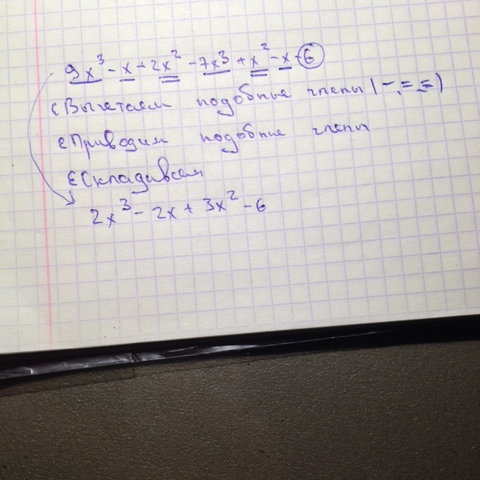 9x³ - x + 2x² - 7x³ + x² - x - 6
Вычетаем подобные члены (-, =, ≡)
Приводим подобные члены
Складиваем
2x³ - 2x + 3x² - 6